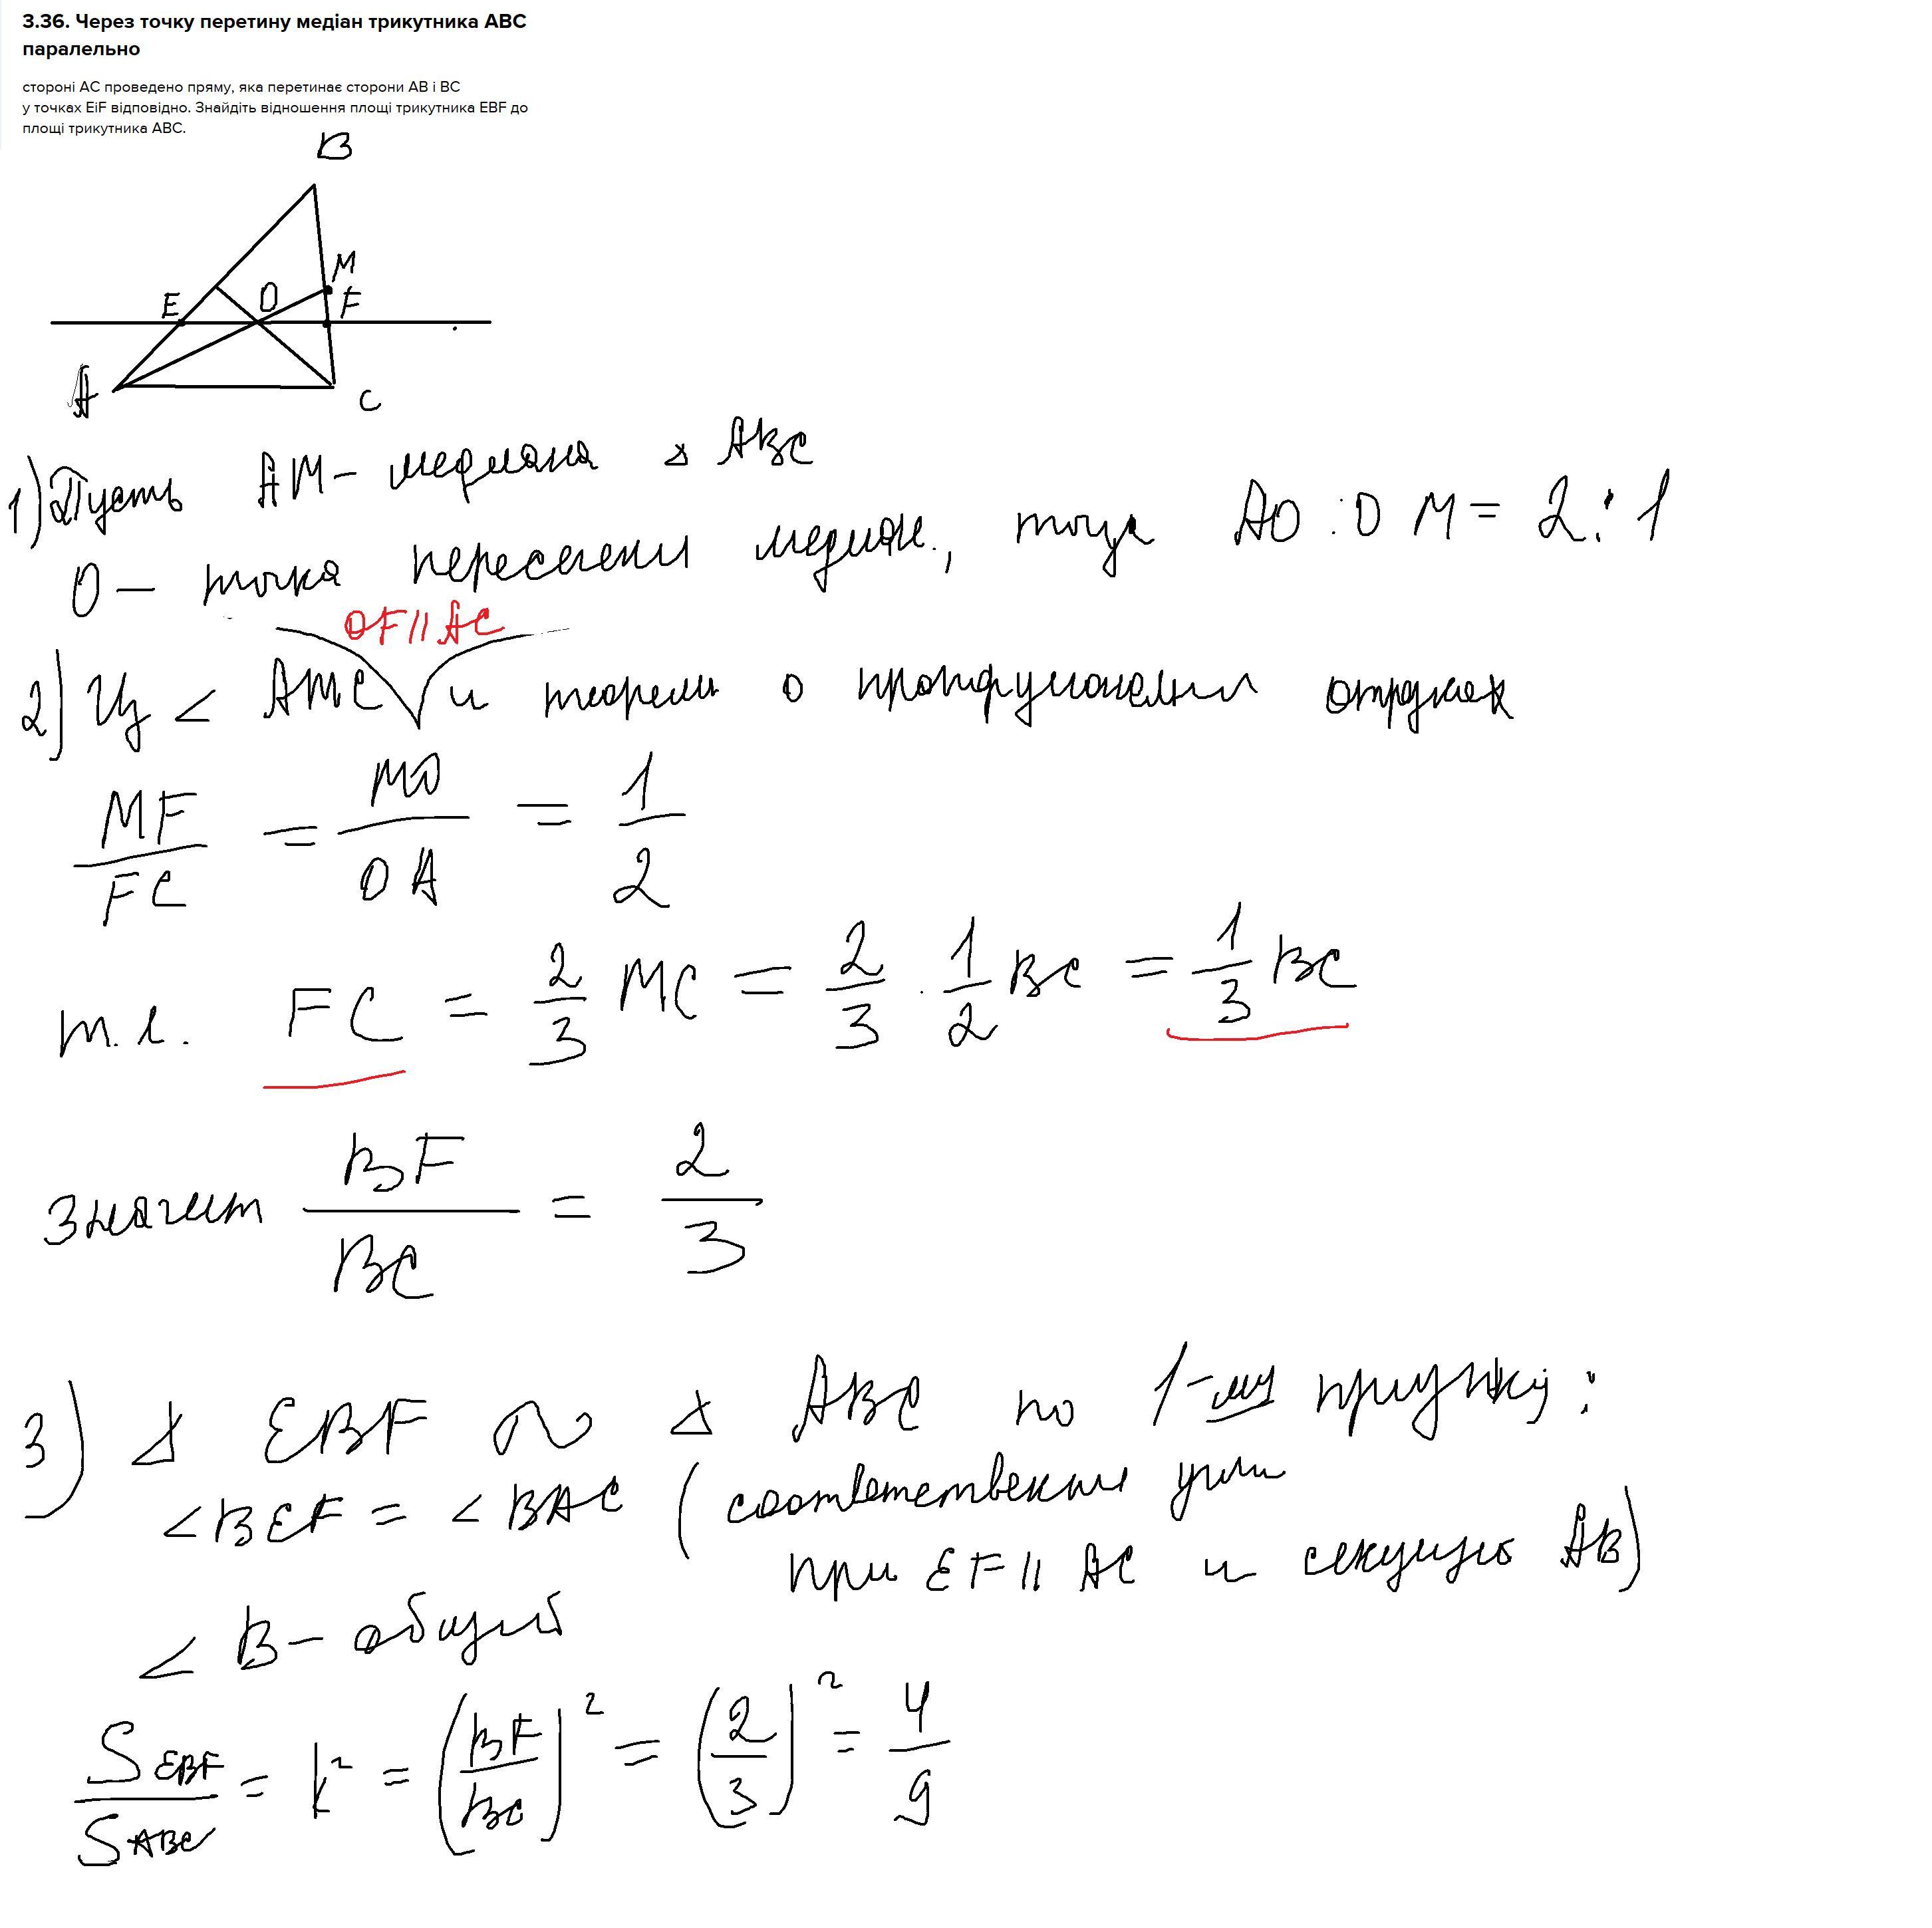 3.36. Через точку перетину медіан трикутника ABC
паралельно
стороні AC проведено пряму, яка перетинає сторони AB і BC
у точках EіF відповідно. Знайдіть відношення площі трикутника EBF до
площі трикутника ABC.
B
M
E O F
A C
1) Пусть AM - медиана △ ABC
O - точка пересечения медиан., тогда AO : OM = 2 : 1
OF || AC
2) Из < AMC и теоремы о пропорциональных отрезках
MF / FC = MO / OA = 1 / 2
т.е. FC = 2/3 MC = 2/3 · 1/2 BC = 1/3 BC
Значит BF / BC = 2 / 3
3) △ EBF ~ △ ABC по 1-му признаку :
< BEF = < BAC ( соответственные углы
при EF || AC и секущей AB)
< B - общий
S EBF / S ABC = k² = (BF / BC)² = (2 / 3)² = 4 / 9